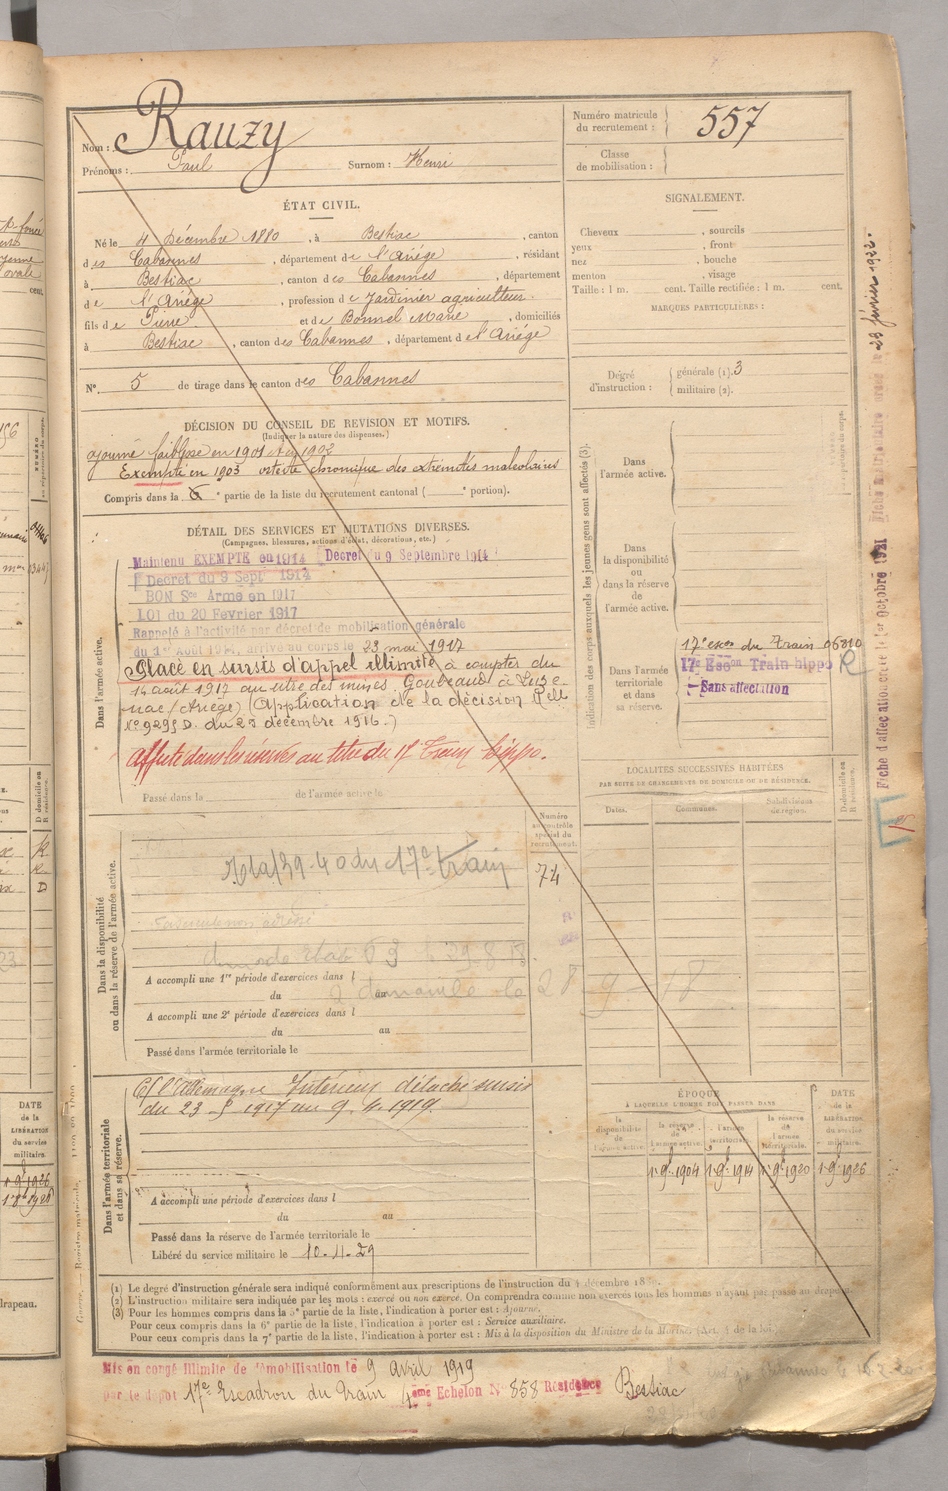 Nom : Rauzy
Prénoms : Paul Surnom : Henri
Numéro matricule du recrutement : 557
Classe de mobilisation :
ÉTAT CIVIL.
Né le 4 Décembre 1880, à Bestiac, canton
des Cabannes, département de l'Ariége, résidant
à Bestiac, canton des Cabannes, département
de l'Ariége, profession de Jardinier agriculteur.
fils de Pierre et de Bonnel Marie, domiciliés
à Bestiac, canton des Cabannes, département de l'Ariége
N° 5 de tirage dans le canton des Cabannes
SIGNALEMENT.
Cheveux , sourcils
yeux , front
nez , bouche
menton , visage
Taille : 1 m. cent. Taille rectifiée : 1 m. cent.
MARQUES PARTICULIÈRES :
Degré d'instruction : générale (1). 3
militaire (2).
DÉCISION DU CONSEIL DE REVISION ET MOTIFS.
(Indiquer la nature des dispenses.)
ajourné faiblesse en 1901 et en 1902
Exempté en 1903 ostéite chronique des extrémités maléolaires
Compris dans la 6e partie de la liste du recrutement cantonal ( e portion).
DÉTAIL DES SERVICES ET MUTATIONS DIVERSES.
(Campagnes, blessures, actions d'éclat, décorations, etc.)
Dans l'armée active.
Maintenu EXEMPTE en 1914 Décret du 9 Septembre 1914
Décret du 9 Sept 1914
BON Sce Armé en 1917
LOI du 20 Fevrier 1917
Rappelé à l'activité par décret de mobilisation générale
du 1er Août 1914, arrivé au corps le 23 mai 1917
Placé en sursis d'appel illimité à compter du
14 août 1917 au titre des mines Goubeaud à Luze-
nac (Ariège) (Application de la décision
N° 9295 D. du 25 décembre 1916.)
Affecté dans les réserves au titre du 17e Train hippo.
Passé dans la de l'armée active le
Indication des corps auxquels les jeunes gens sont affectés (3).
Dans l'armée active.
Dans la disponibilité ou dans la réserve de l'armée active.
Dans l'armée territoriale et dans sa réserve.
17e escon du Train 06810
17e Escon Train hippo R
Sans affectation
Fiche d'affectation créée le 1er Octobre 1921
Fiche matriculaire 23 février 1922.
LOCALITÉS SUCCESSIVES HABITÉES
PAR SUITE DE CHANGEMENTS DE DOMICILE OU DE RÉSIDENCE.
Dates. Communes. Subdivisions de région. D domicile ou R résidence.
Numéro au contrôle spécial du recrutement.
74
Dans la disponibilité ou dans la réserve de l'armée active.
39.40 du 17e train
29-8-18
A accompli une 1re période d'exercices dans l
du au
28-9-18
A accompli une 2e période d'exercices dans l
du au
Passé dans l'armée territoriale le
Dans l'armée territoriale et dans sa réserve.
C/ l'Allemagne Intérieur détaché sursis
du 23-5-1917 au 9-4-1919.
A accompli une période d'exercices dans l
du au
Passé dans la réserve de l'armée territoriale le
Libéré du service militaire le 10-11-29
ÉPOQUE
À LAQUELLE L'HOMME DOIT PASSER DANS
la disponibilité de l'armée active. la réserve de l'armée active. l'armée territoriale. la réserve de l'armée territoriale.
DATE de la LIBÉRATION du service militaire.
1-9bre 1904 1-9bre 1914 1-9bre 1920 1-9bre 1926
(1) Le degré d'instruction générale sera indiqué conformément aux prescriptions de l'instruction du 4 décembre 18
(2) L'instruction militaire sera indiquée par les mots : exercé ou non exercé. On comprendra comme non exercés tous les hommes n'ayant pas passé au drapeau.
(3) Pour les hommes compris dans la 5e partie de la liste, l'indication à porter est : Ajourné.
Pour ceux compris dans la 6e partie de la liste, l'indication à porter est : Service auxiliaire.
Pour ceux compris dans la 7e partie de la liste, l'indication à porter est : Mis à la disposition du Ministre de la Marine (Art. 4 de la loi.)
Mis en congé illimité de démobilisation le 9 avril 1919
par le dépôt 17e Escadron du Train 4eme Echelon N° 858 Résidence Bestiac